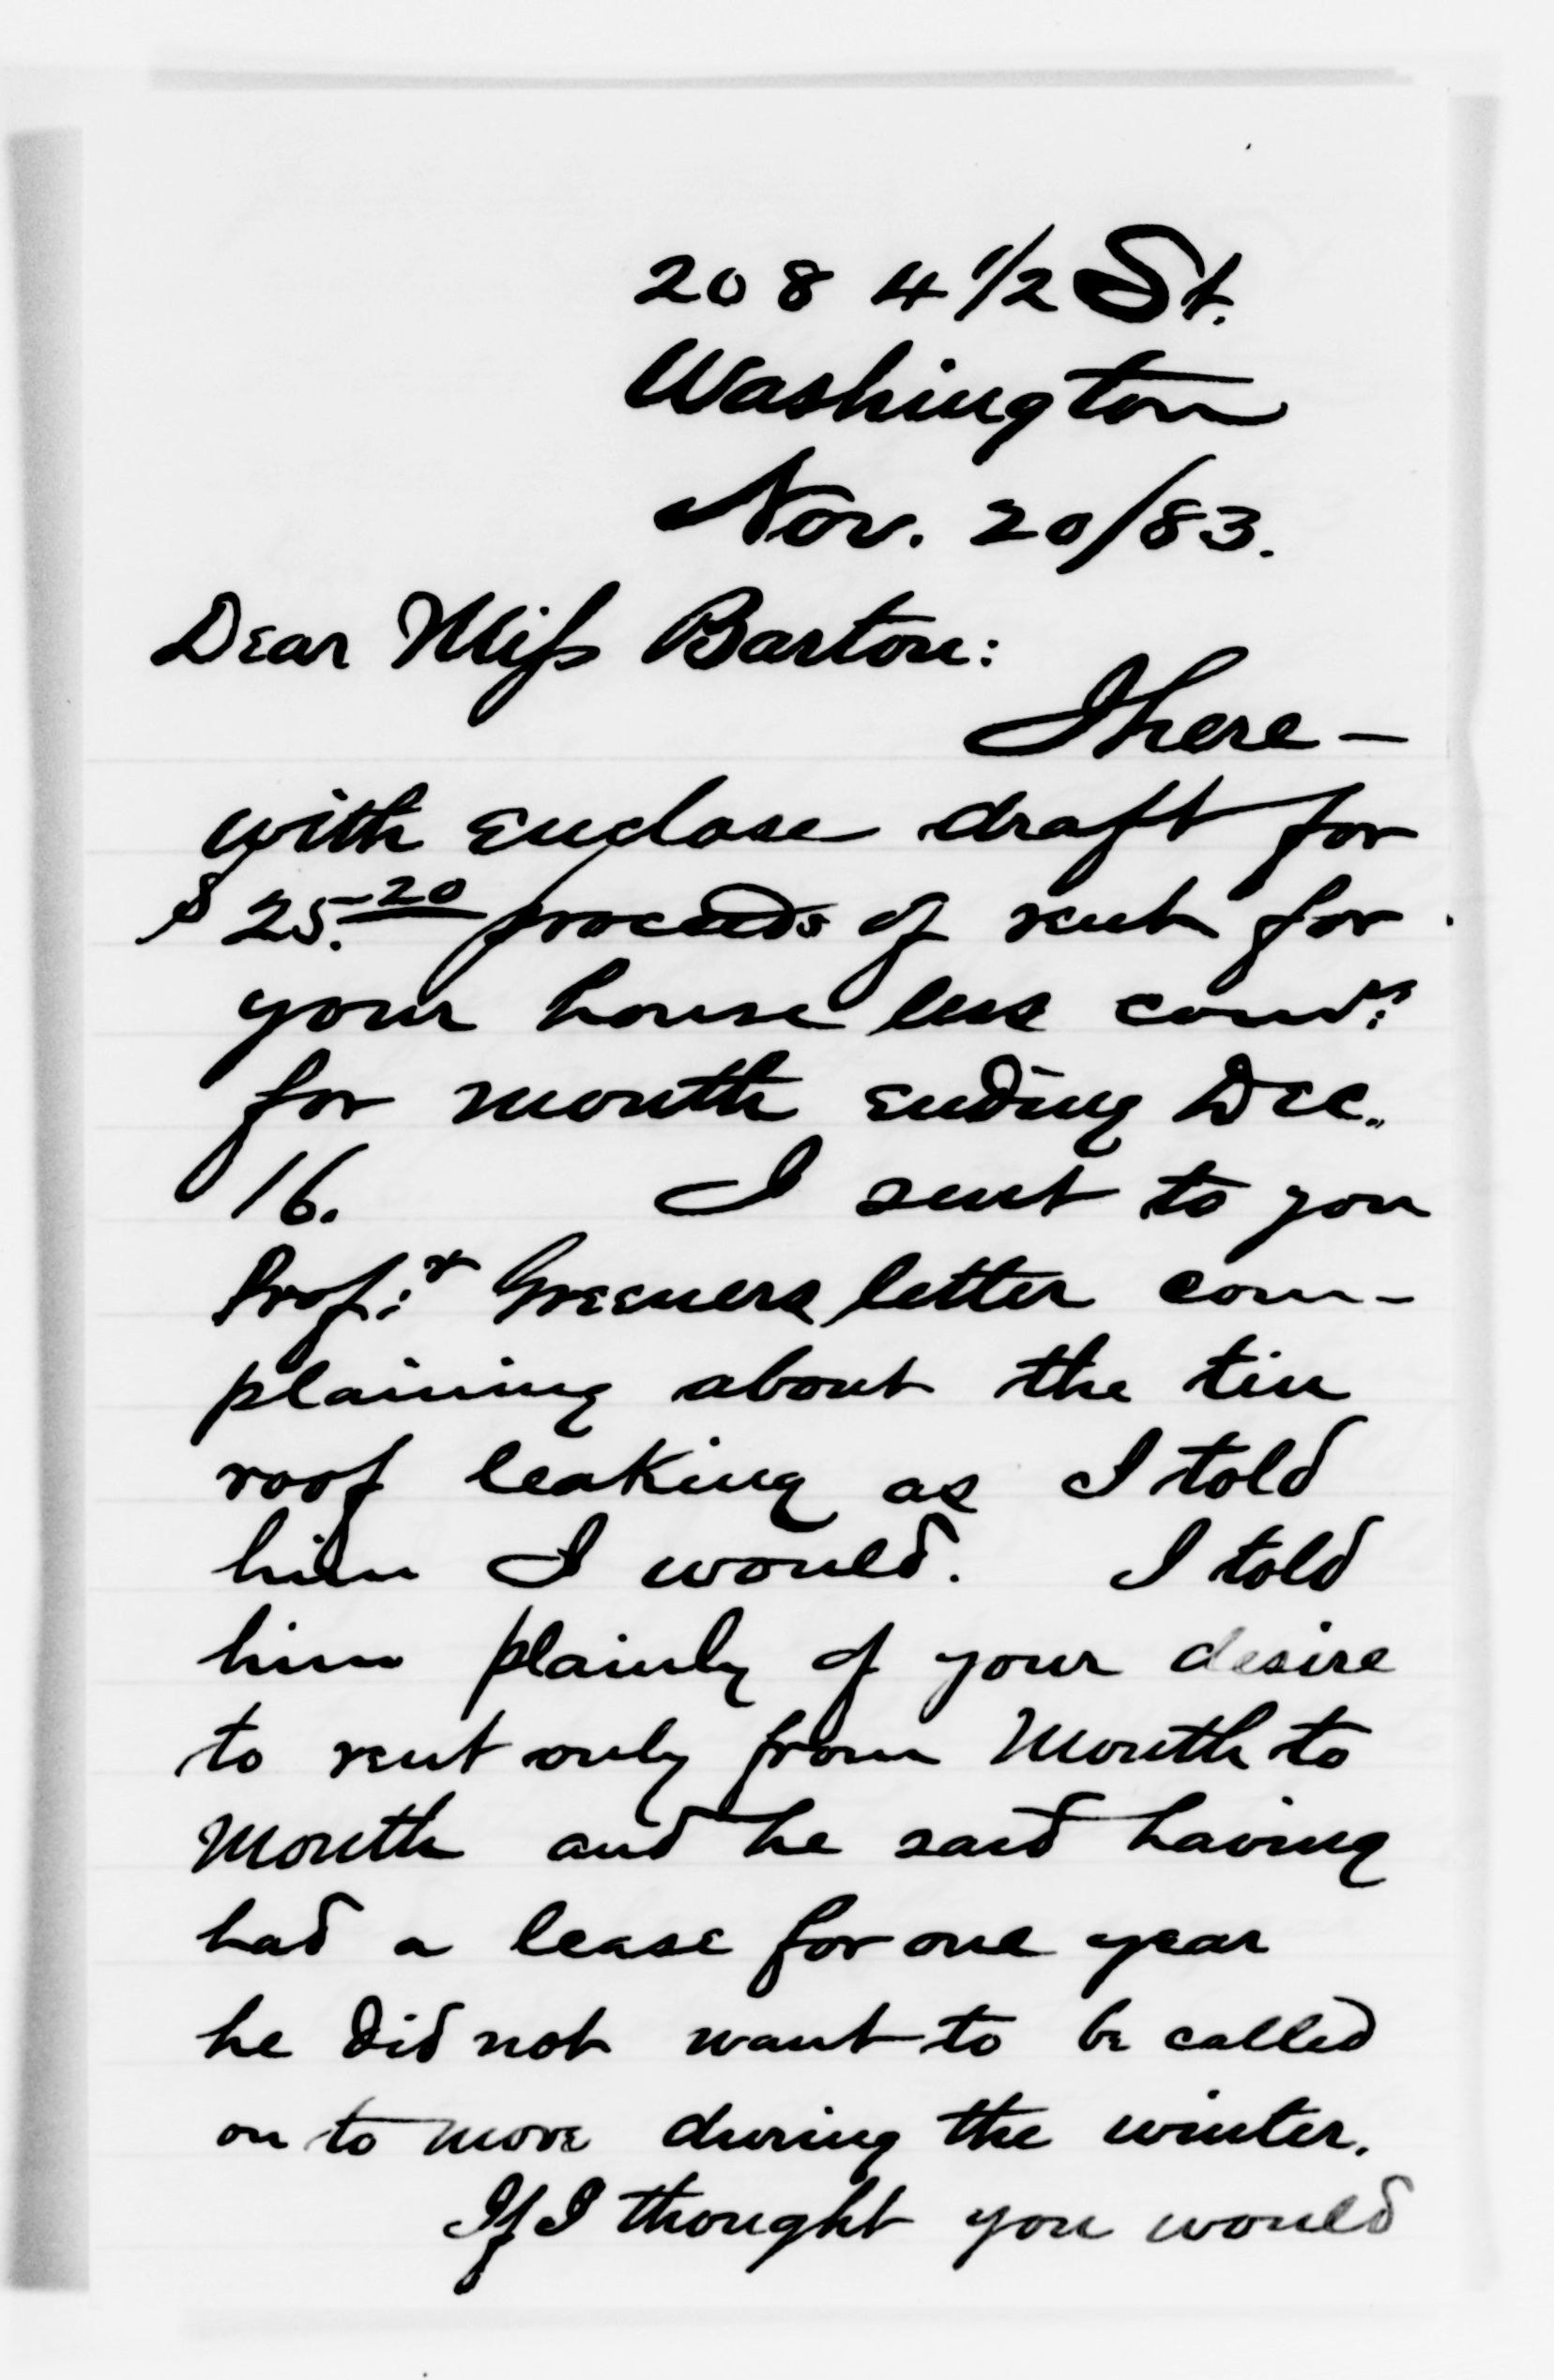 208 4 1/2 St.
Washington
Nov. 20/83.
Dear Miss Barton:
I here-
with enclose draft for
$25.20 proceeds of rent for
your house less coms:
for month ending Dec.
16. I sent to you
Prof:r Greeners letter com-
plaining about the tin
roof leaking as I told
him I would. I told
him plainly of your desire
to rent only from Month to
Month and he said having
had a lease for one year
he did not want to be called
on to move during the winter.
If I thought you would